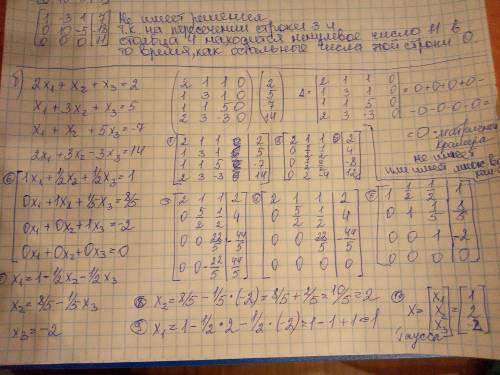 [1 -3 1 | 7] Не имеет решения
[0 10 -5 | -18] т.к. на пересечении строки 3 и
[0 0 0 | 11] столбца 4 находится ненулевое число 11 в
то время, как остальные числа этой строки 0.
б) 2x₁+x₂+x₃=2
x₁+3x₂+x₃=5
x₁+x₂+5x₃=-7
2x₁+3x₂-3x₃=14
(2 1 1 0)
(1 3 1 0)
(1 1 5 0)
(2 3 -3 0)
(2)
(5)
(7)
(14)
Δ=
[2 1 1 0]
[1 3 1 0]
[1 1 5 0]
[2 3 -3 0]
=0+0+0-
-0-0-0-0=
=0
Крамера
не имеет
или имеет
①
[2 1 1 | 2]
[1 3 1 | 5]
[1 1 5 | -7]
[2 3 -3 | 14]
③
[2 5/2 1/2 | 4]
[0 0 22/5 | -44/5]
[0 0 -22/5 | 44/5]
④
[2 1 1 | 2]
[0 5/2 1/2 | 4]
[0 0 22/5 | 44/5]
[0 0 0 | 0]
⑤
[1 1/2 1/2 | 1]
[0 1 1/5 | 8/5]
[0 0 1 | -2]
[0 0 0 | 0]
⑥ [1x₁+1/2x₂+1/2x₃=1
0x₁+1x₂+1/5x₃=8/5
0x₁+0x₂+1x₃=-2
0x₁+0x₂+0x₃=0
⑦ x₁=1-1/2x₂-1/2x₃
x₂=8/5-1/5x₃
x₃=-2
⑧ x₂=8/5-1/5·(-2)=8/5+2/5=10/5=2
⑨ x₁=1-1/2·2-1/2·(-2)=1-1+1=1
⑩ x=[x₁ x₂ x₃]=[1 2 -2]
Гаусса